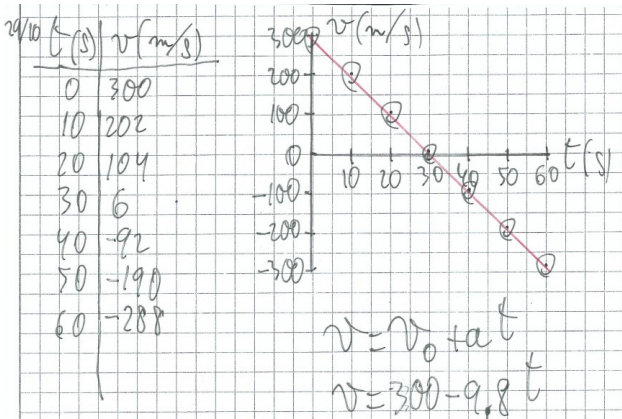 29/10
t(s) v(m/s)
0 300
10 202
20 104
30 6
40 -92
50 -190
60 -288
v(m/s)
300
200
100
0
-100
-200
-300
10 20 30 40 50 60 t(s)
v=v₀+at
v=300-9,8t